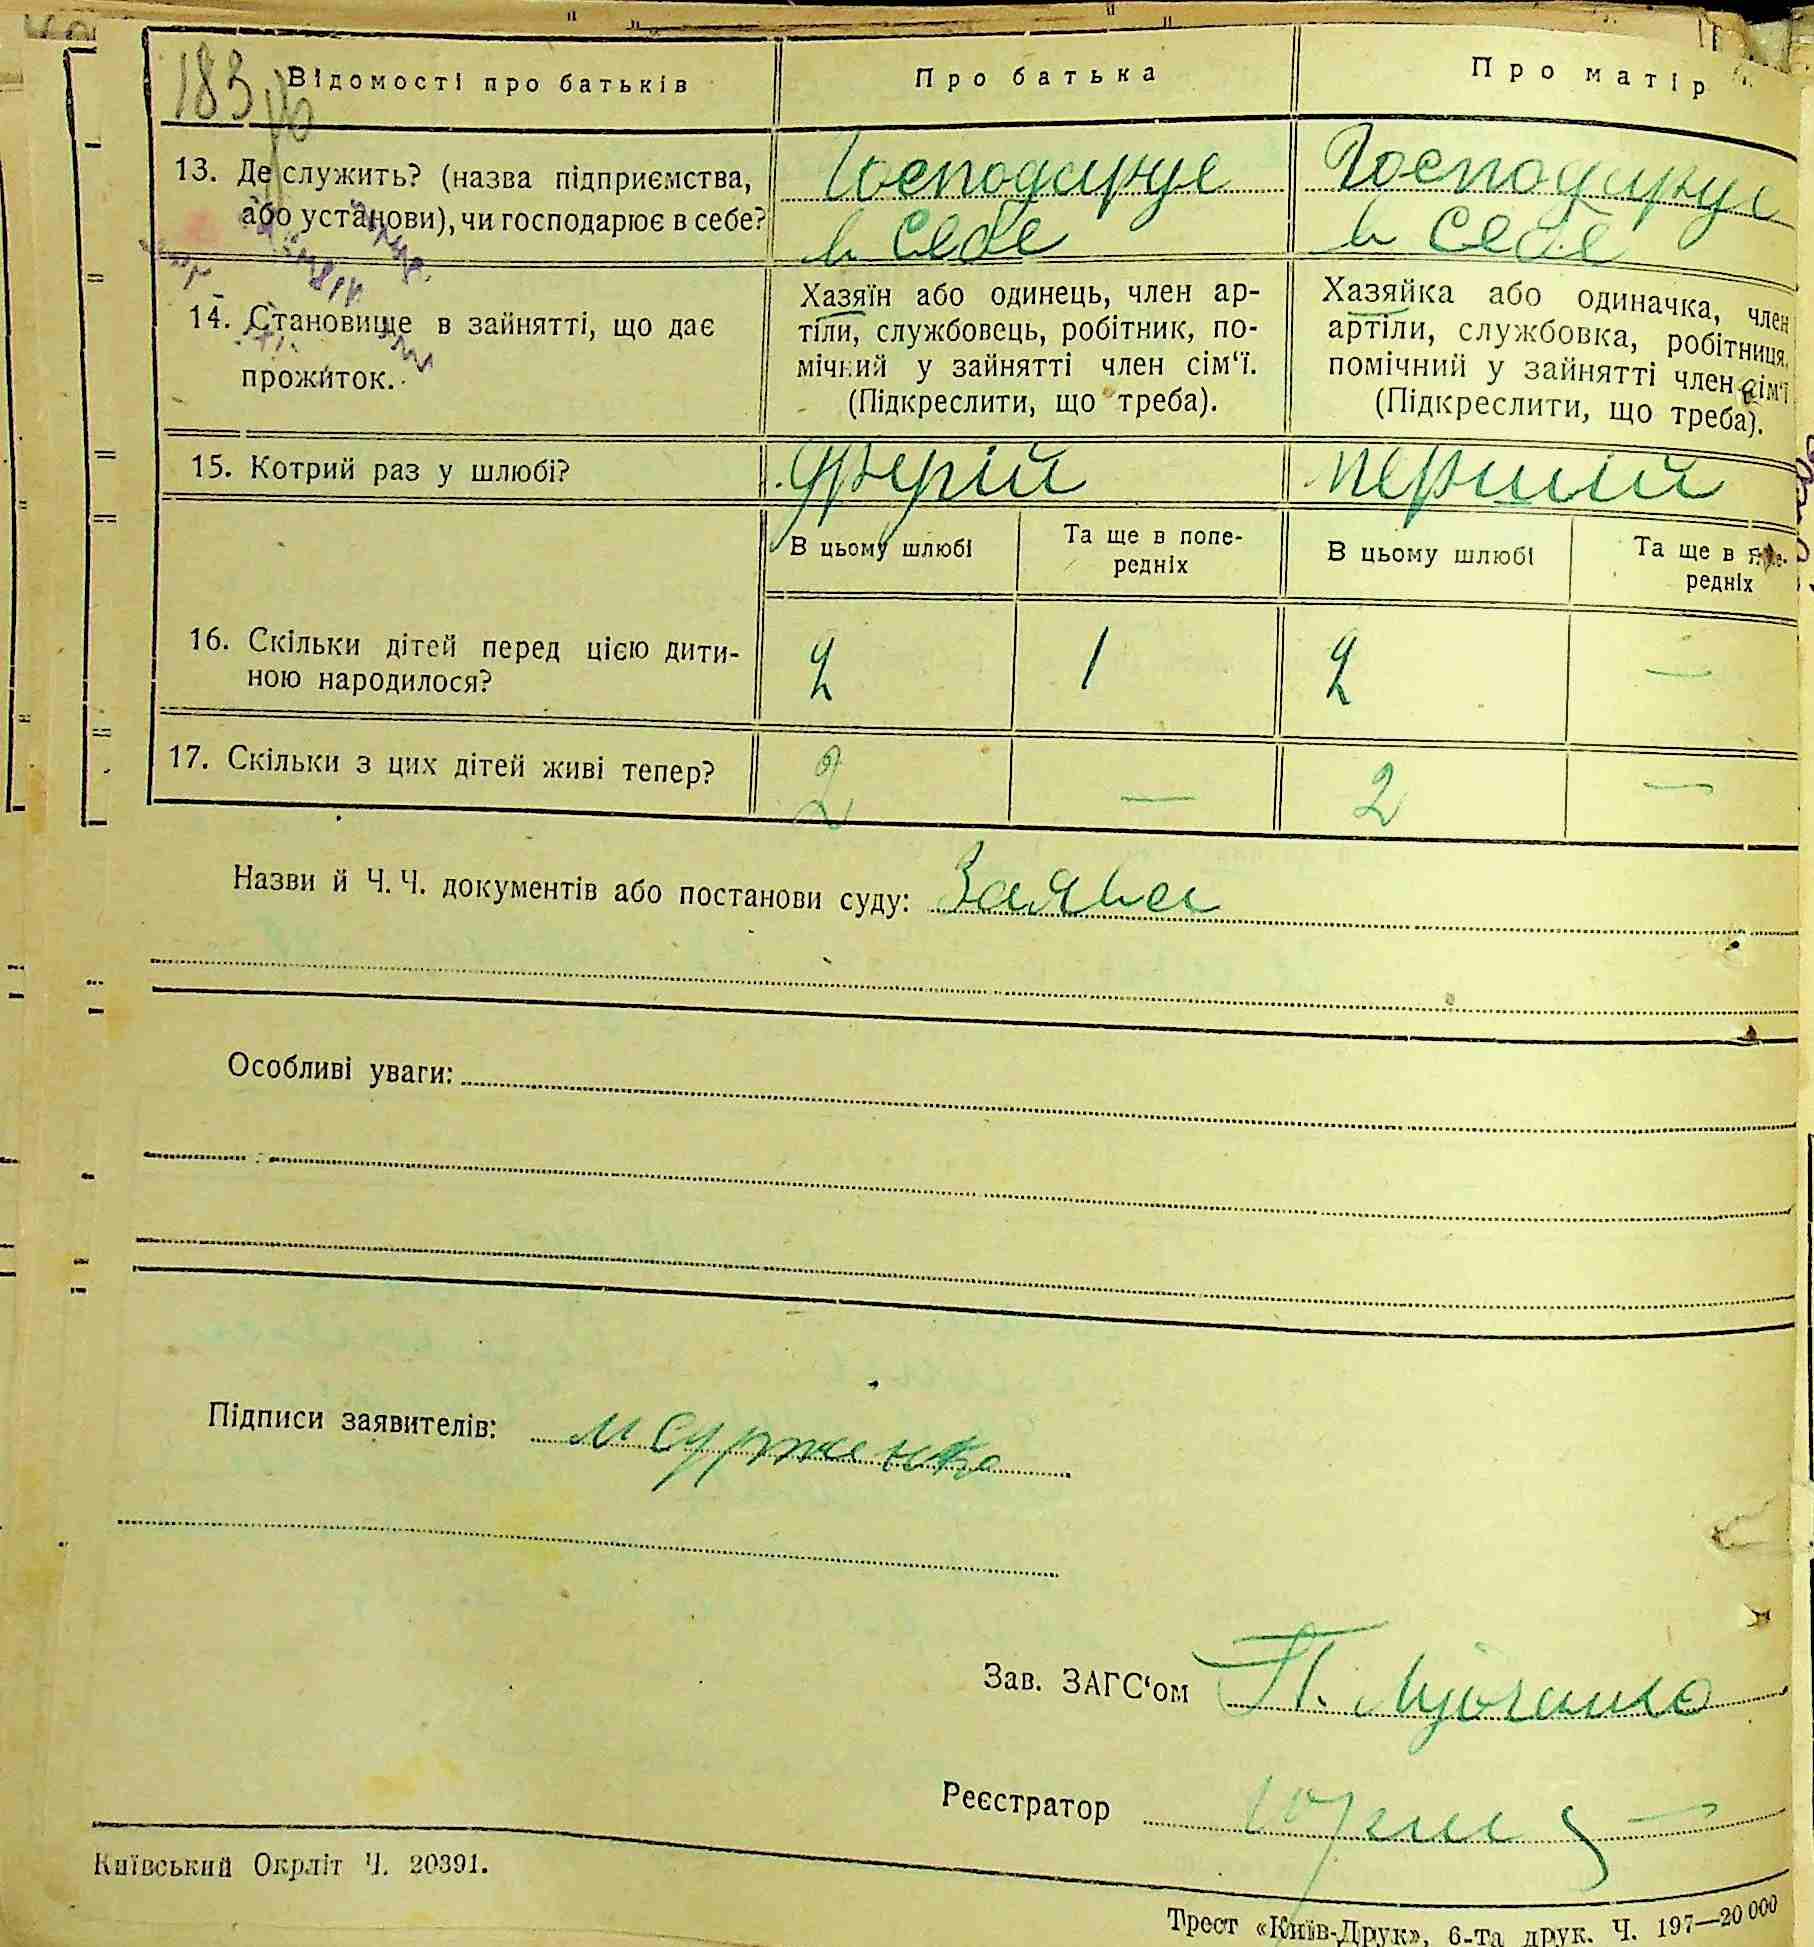 183
Відомості про батьків
Про батька
Про матір
13. Де служить? (назва підприємства,
або установи), чи господарює в себе?
Господарує
в себе
Господарує
в себе
14. Становище в зайнятті, що дає
прожиток.
Хазяїн або одинець, член ар-
тіли, службовець, робітник, по-
мічний у зайнятті член сім‘ї.
(Підкреслити, що треба).
Хазяйка або одиначка, член
артіли, службовка, робітниця,
помічний у зайнятті член сім‘ї
(Підкреслити, що треба).
15. Котрий раз у шлюбі?
другій
першій
В цьому шлюбі
Та ще в попе-
редніх
В цьому шлюбі
Та ще в попе-
редніх
16. Скільки дітей перед цією дити-
ною народилося?
2
1
2
—
17. Скільки з цих дітей живі тепер?
2
—
2
—
Назви й Ч. Ч. документів або постанови суду: Заява
Особливі уваги:
Підписи заявителів:
Зав. ЗАГС‘ом П.
Реєстратор
Київський Окрліт Ч. 20391.
Трест «Київ-Друк», 6-та друк. Ч. 197—20 000